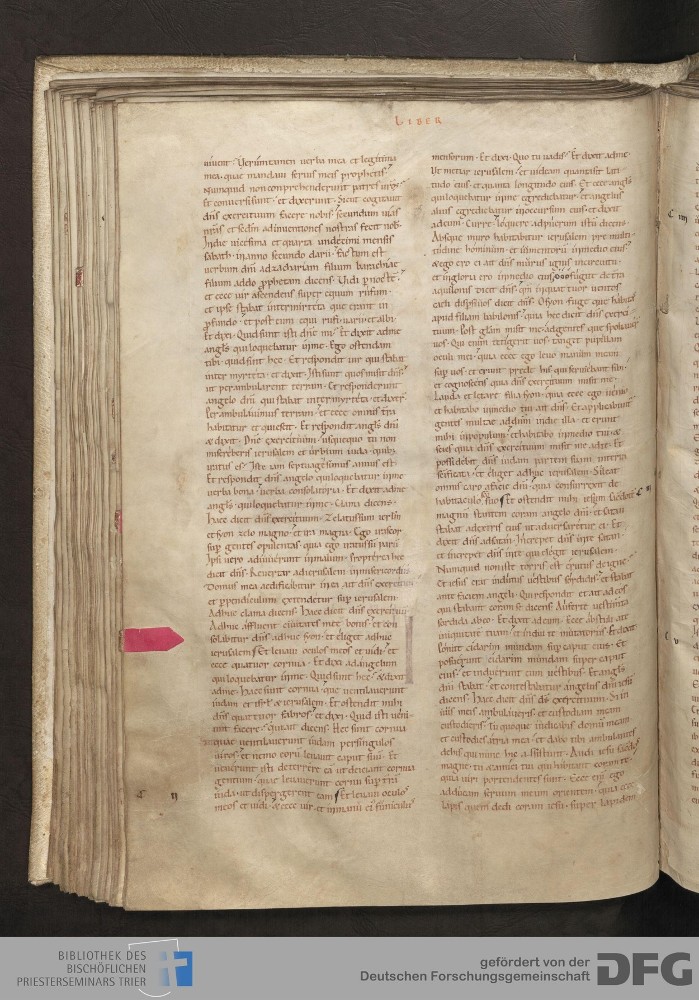 LIBER
uiuent. Verumtamen uerba mea et legitima
mea. que mandaui seruis meis prophetis.
Numquid non comprehenderunt patres uros.
et conuersi sunt. et dixerunt. Sicut cogitauit
dns exercituum facere nobis. secundum uias
nras et sedm adinuentiones nostras fecit nob.
In die uicesima et quarta undecimi mensis
sabath. in anno secundo darii. factum est
uerbum dni ad zachariam filium barachiae
filium addo prophetam dicens. Vidi p nocte.
et ecce uir ascendens super equum rufum.
et ipse stabat inter mirteta que erant in
pfundo. et post eum equi rufi. uarii et albi.
Et dixi. Quid sunt isti dne mi. Et dixit ad me
angls qui loquebatur in me. Ego ostendam
tibi quid sint hec. Et respondit uir qui stabat
inter myrteta. et dixit. Isti sunt quos misit dns.
ut perambularent terram. Et responderunt
angelo dni qui stabat inter myrteta. et dixer.
Perambulauimus terram. et ecce omnis tra
habitatur et quiescit. Et respondit angls dni
& dixit. Dne exercituum. usquequo tu non
misereberis ierusalem et urbium iuda. quib;
iratus es. Iste iam septuagesimus annus est.
Et respondit dns angelo qui loquebatur in me
uerba bona. uerba consolatoria. Et dixit ad me
angls qui loquebatur in me. Clama dicens.
haec dicit dns exercituum. Zelatus sum ierlm
et syon zelo magno. et ira magna. Ego irascor
sup gentes opulentas. quia ego iratus sum parum
Ipsi uero adiuuerunt in malum. Propterea hec
dicit dns. Reuertar ad ierusalem in misericordiis
Domus mea aedificabitur in ea ait dns exercituum
et ppendiculum extendetur sup ierusalem.
Adhuc clama dicens. Haec dicit dns exercituum
Adhuc affluent ciuitates mee bonis. et con
solabitur dns adhuc syon. et eliget adhuc
ierusalem. Et leuaui oculos meos et uidi. et
ecce quatuor cornua. Et dixi ad angelum
qui loquebatur in me. Quid sunt hec. & dixit
ad me. Haec sunt cornua que uentilauerunt
iudam et isrl & ierusalem. Et ostendit mihi
dns quattuor fabros. et dixi. Quid isti ueni
unt facere. Qui ait dicens. Hec sunt cornua
quae uentilauerunt iudam per singulos
uiros. et nemo eorum leuauit caput suum. Et
uenerunt isti deterrere ea ut deiciant cornua
gentium. quae leuauerunt cornu sup tra
iuda. ut dispergerent eam. Et leuaui oculos
meos et uidi. & ecce uir. et in manu eius funiculus
mensorum. Et dixi. Quo tu uadis. Et dixit ad me.
Vt metiar ierusalem. et uideam quanta sit lati
tudo eius. et quanta longitudo eius. Et ecce angls
qui loquebatur in me egrediebatur. et angelus
alius egrediebatur in occursum eius. et dixit
ad eum. Curre. loquere ad puerum istum dicens.
Absque muro habitabitur ierusalem pre multi
tudine hominum. et iumentorum in medio eius.
& ego ero ei ait dns murus ignis in circuitu.
et in gloria ero in medio eius. O o o fugite de tra
aquilonis dicit dns. qm in quatuor uentos
caeli dispersi uos dicit dns. O syon fuge que habitas
apud filiam babilonis. quia hec dicit dns exerci
tuum. Post glam misit me ad gentes que spoliauer
uos. Qui enim tetigerit uos. tangit pupillam
oculi mei. quia ecce ego leuo manum meam
sup uos. et erunt prede his qui seruiebant sibi.
et cognoscetis quia dns exercituum misit me.
Lauda et letare filia syon. quia ecce ego uenio.
et habitabo in medio tui ait dns. Et applicabunt
gentes multae ad dnm in die illa. et erunt
mihi in populum. et habitabo in medio tui. &
scies quia dns exercituum misit me ad te. Et
possidebit dns iudam partem suam in terra
scificata. et eliget adhuc ierusalem. Sileat
omnis caro a facie dni. quia consurrexit de
habitaculo suo. Et ostendit mihi iesum sacdote
magnum stantem coram angelo dni. et satan
stabat a dextris eius ut aduersaretur ei. Et
dixit dns ad satan. Increpet dns in te satan.
et increpet dns in te qui elegit ierusalem.
Numquid non iste torris est erutus de igne.
Et iesus erat indutus uestibus sordidis. et stabat
ante faciem angeli. Qui respondit et ait ad eos
qui stabant coram se dicens. Auferte uestimta
sordida ab eo. Et dixit ad eum. Ecce abstuli a te
iniquitatem tuam. et indui te mutatoriis. Et dixit
Ponite cidarim mundam sup caput eius. Et
posuerunt cidarim mundam super caput
eius. et induerunt eum uestibus. Et angls
dni stabat. et contestabatur angelus dni iesum
dicens. Haec dicit dns ds exercituum. Si in
uiis meis ambulaueris. et custodiam meam
custodieris. tu quoque iudicabis domum meam
et custodies atria mea. et dabo tibi ambulantes
de his qui nunc hic assistunt. Audi iesu sacdos
magne. tu & amici tui qui habitant coram te.
quia uiri portendentes sunt. Ecce eni ego
adducam seruum meum orientem. quia ecce
lapis quem dedi coram iesu. super lapidem
BIBLIOTHEK DES
BISCHÖFLICHEN
PRIESTERSEMINARS TRIER
gefördert von der
Deutschen Forschungsgemeinschaft
DFG